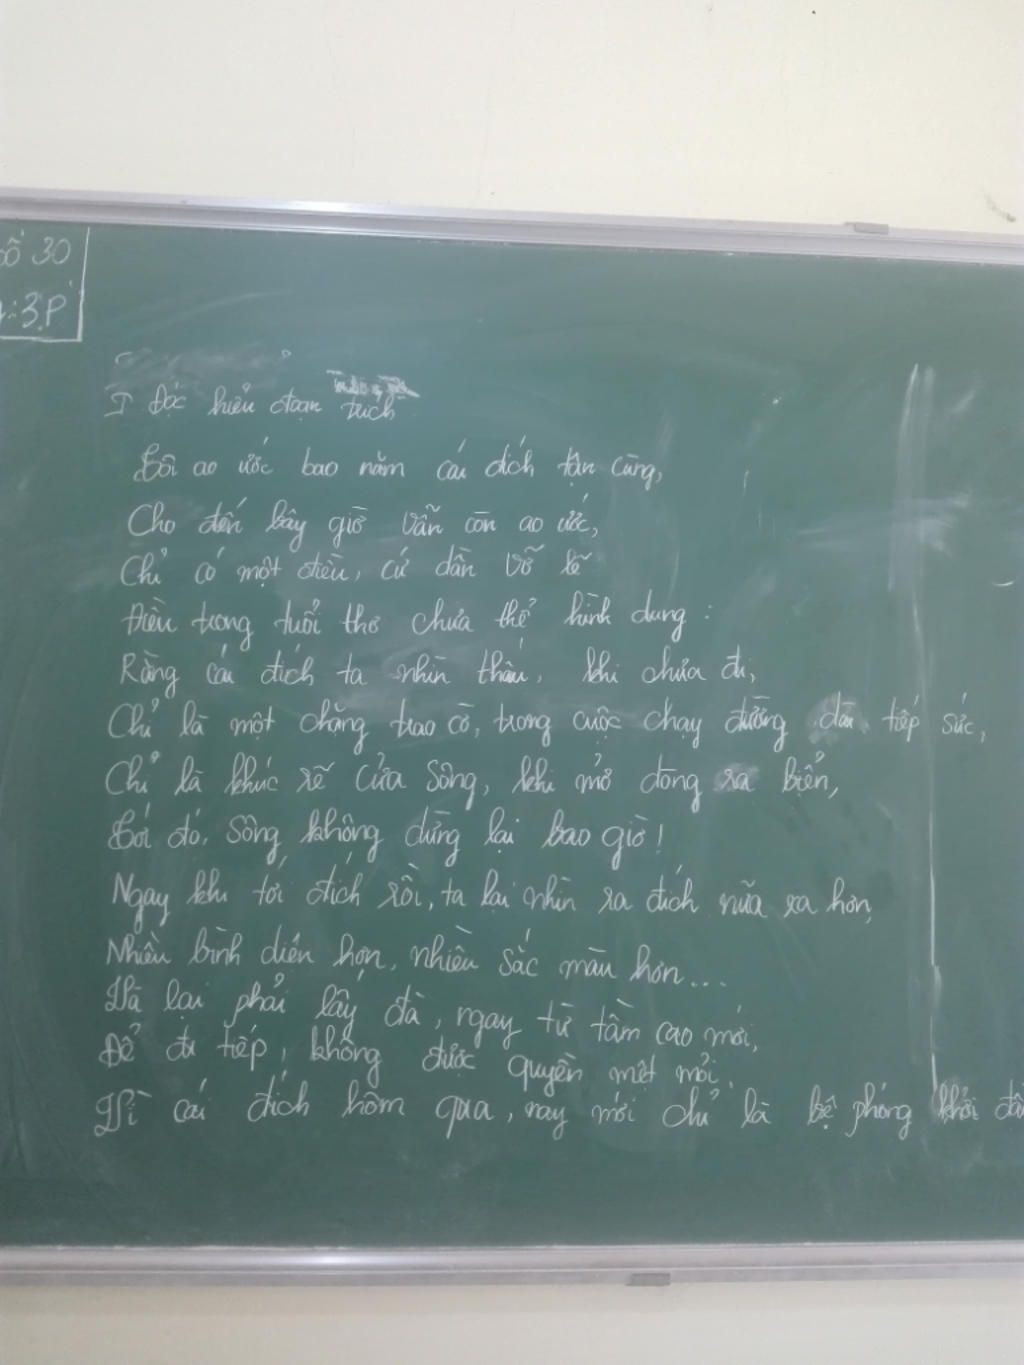 Số 30
:3.P
I Đọc hiểu đoạn trích
Tôi ao ước bao năm cái đích tận cùng,
Cho đến bây giờ vẫn còn ao ước,
Chỉ có một điều, cứ dần vỡ lẽ
Điều trong tuổi thơ chưa thể hình dung :
Rằng cái đích ta nhìn thấu, khi chưa đi,
Chỉ là một chặng trao cờ, trong cuộc chạy đường dài tiếp sức,
Chỉ là khúc rẽ cửa sông, khi mở dòng ra biển,
Tới đó, sông không dừng lại bao giờ!
Ngay khi tới đích rồi, ta lại nhìn ra đích nữa xa hơn,
Nhiều bình diện hơn, nhiều sắc màu hơn...
Và lại phải lấy đà, ngay từ tầm cao mới,
Để đi tiếp, không được quyền mệt mỏi
Vì cái đích hôm qua, nay mới chỉ là bệ phóng khởi